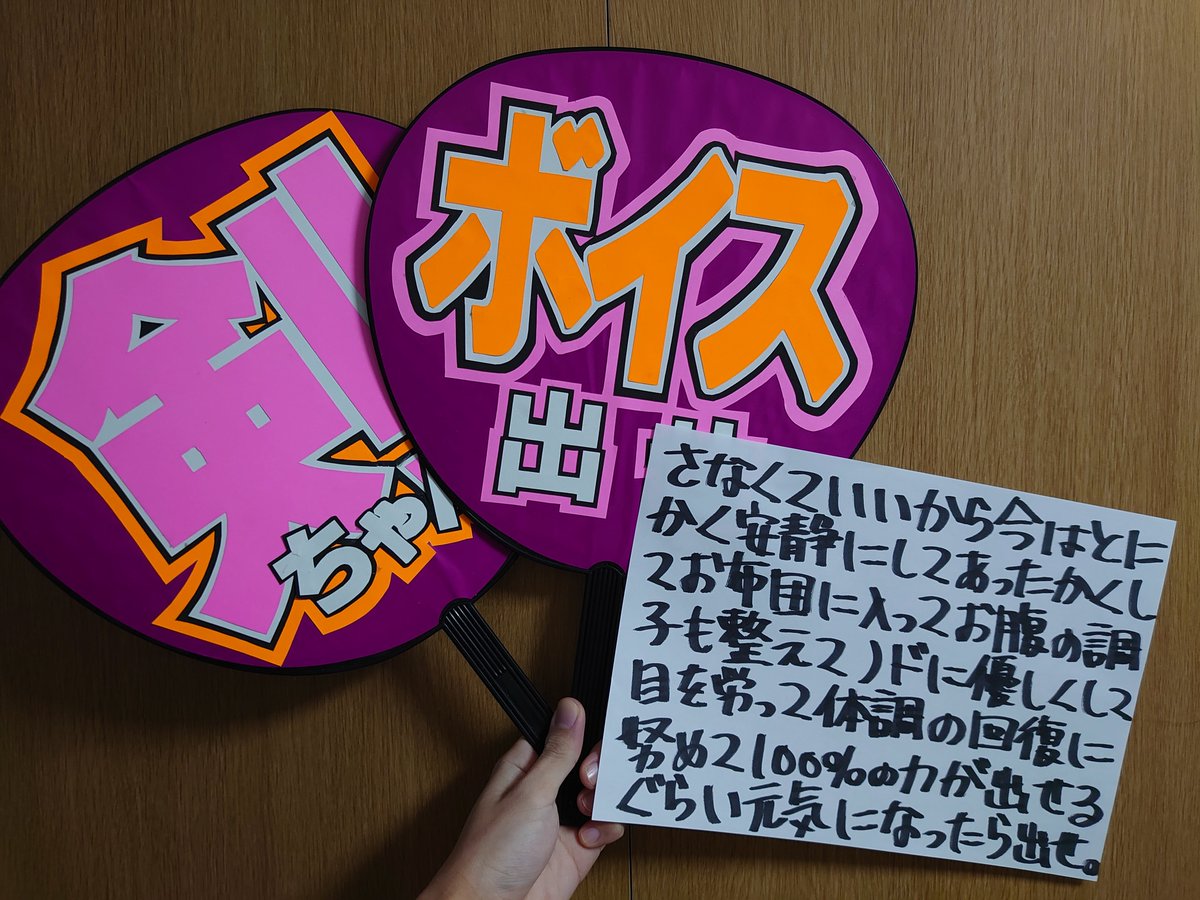 剣
ちゃん
ボイス
出
さなくていいから今はとに
かく安静にしてあったかくし
てお布団に入ってお腹の調
子も整えてノドに優しくして
目を労って体調の回復に
努めて100%の力が出せる
ぐらい元気になったら出せ。